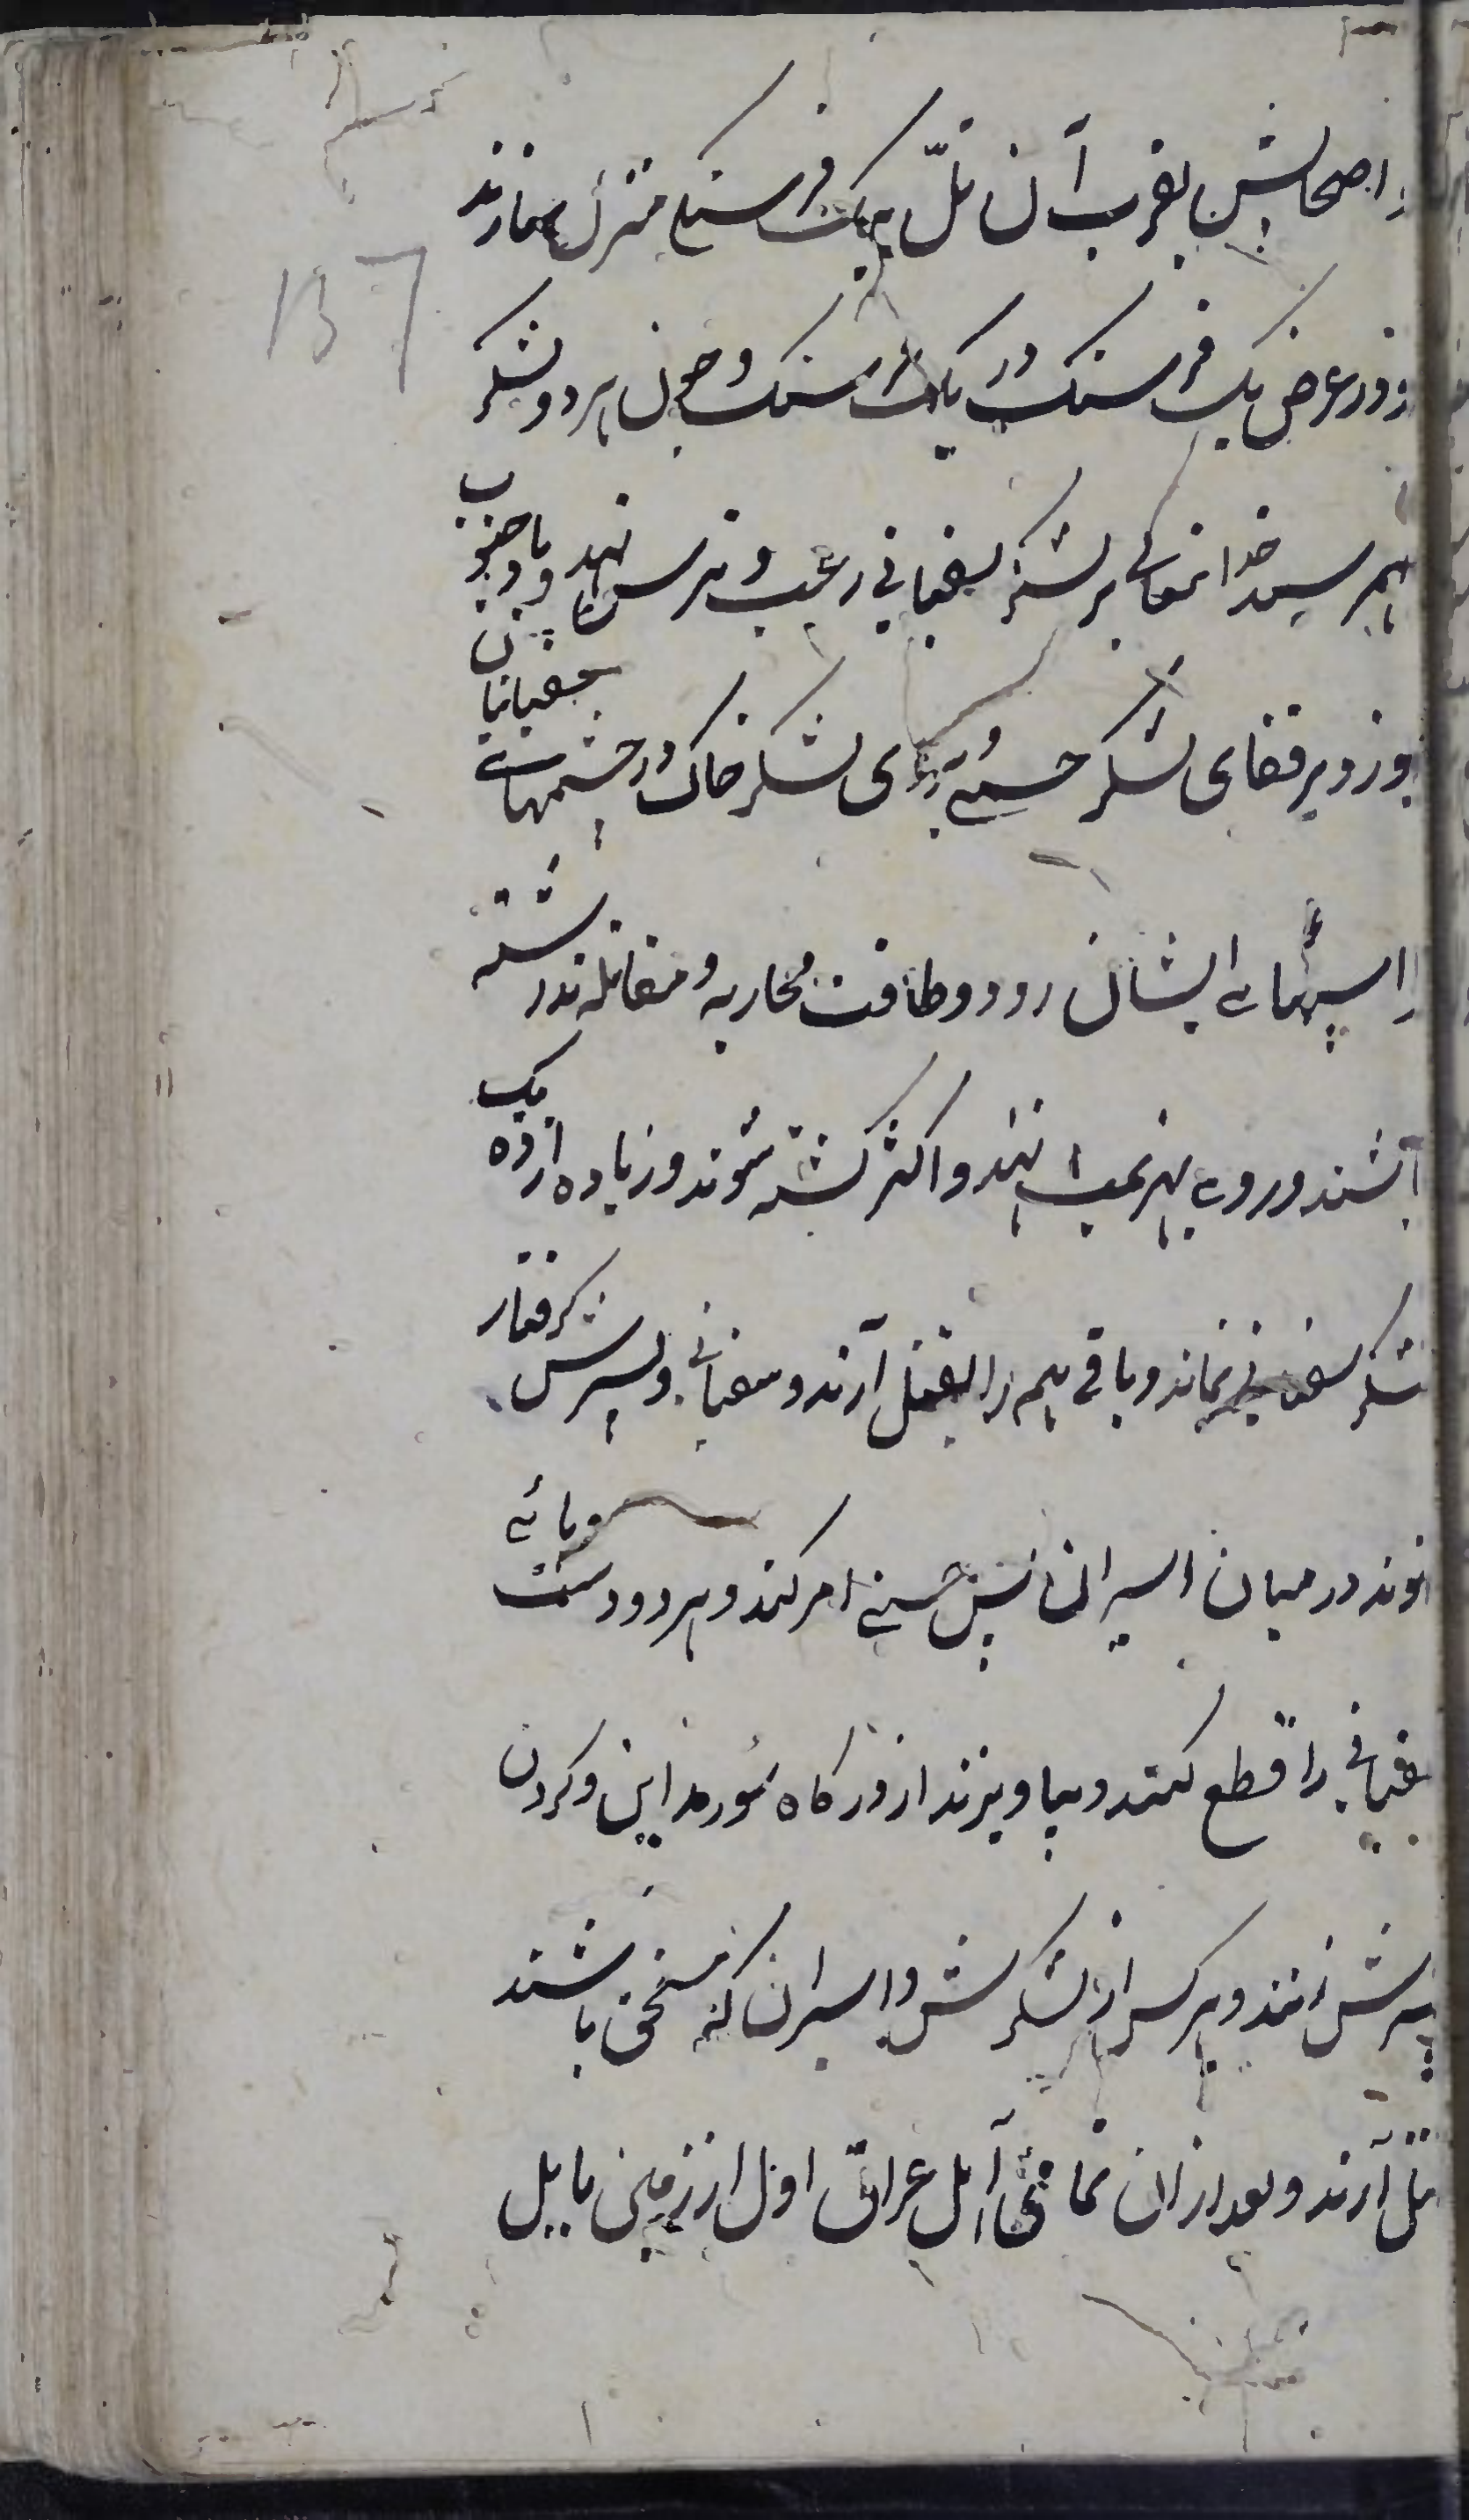 و اصحابش بقرب آن تلّ بیک فرسنخ منزل سازند
137
و در عرض یک فرسنک در یک فرسنک و چون هر دو لشکر
بهم رسند خدا تعالی بر لشکر سفیانی رعب و ترس نهد و باد جنوب
بوزد و بر قفای لشکر حسنی و بروی لشکر خاک در چشمهای سفیانیان
و اسپهای ایشان رود و طاقت محاربه و مقاتله نداشته
باشند و روی بهزیمت نهند و اکثر کشته شوند و زیاده از ده یک
لشکر سفیانی نماند و باقی هم را بقتل آرند و سفیانی و پسرش کرفتار
شوند در میان اسیران پس حسنی امر کند و هر دو دست و پای
سفیانی را قطع کنند و بیاویزند از درکاه شور
پسرش زنند و هر کس از لشکرش و اسیران که مستحق باشند
بقتل آرند و بعد از ان تمامی اهل عراق اول از زمین بابل